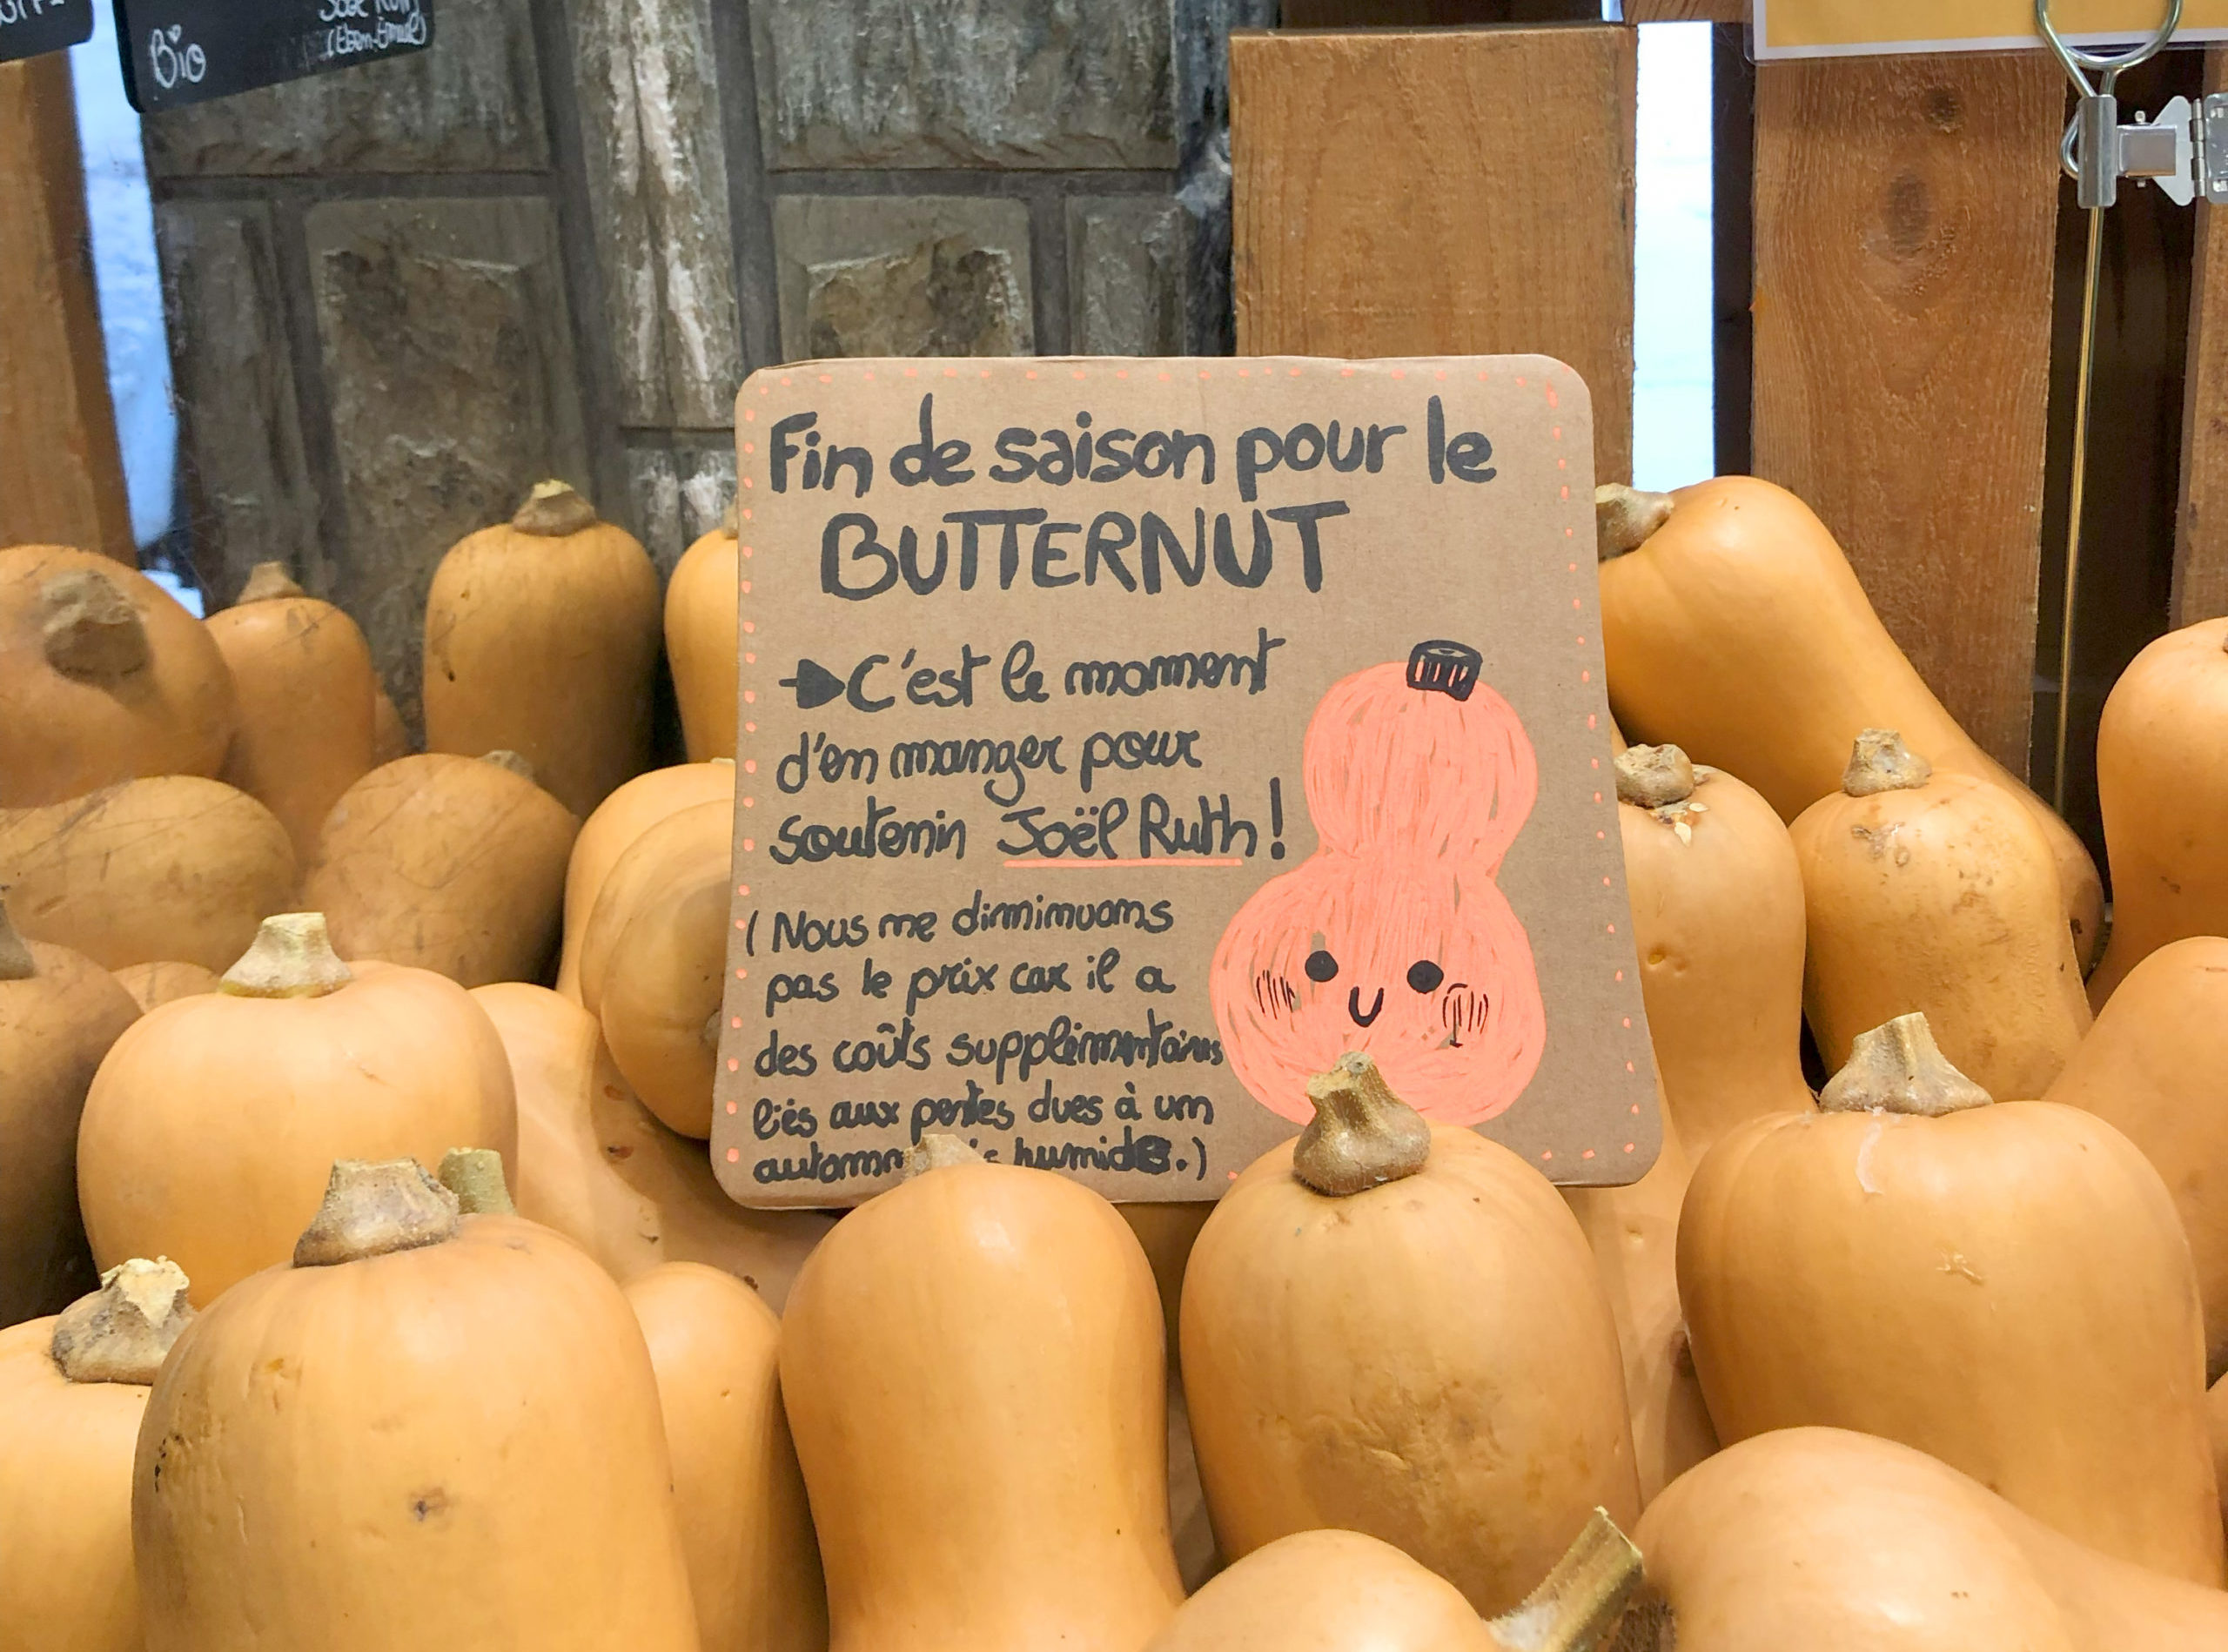 Bio
(Eben-Emael)
Fin de saison pour le
BUTTERNUT
C'est le moment
d'en manger pour
soutenir Joël Ruth !
( Nous ne diminuons
pas le prix car il a
des coûts supplémentaires
liés aux pertes dues à un
humide.)